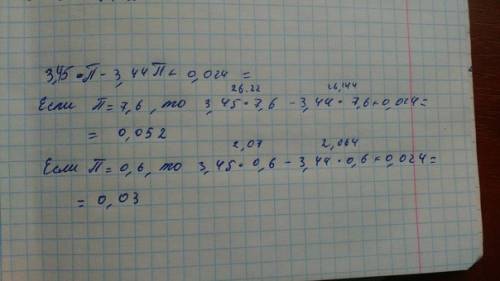 3,45 · П - 3,44 П + 0,024 =
26.22 26,144
Если П = 7,6, то 3,45 · 7,6 - 3,44 · 7,6 + 0,024 =
= 0,052
2,07 2,064
Если П = 0,6, то 3,45 · 0,6 - 3,44 · 0,6 + 0,024 =
= 0,03